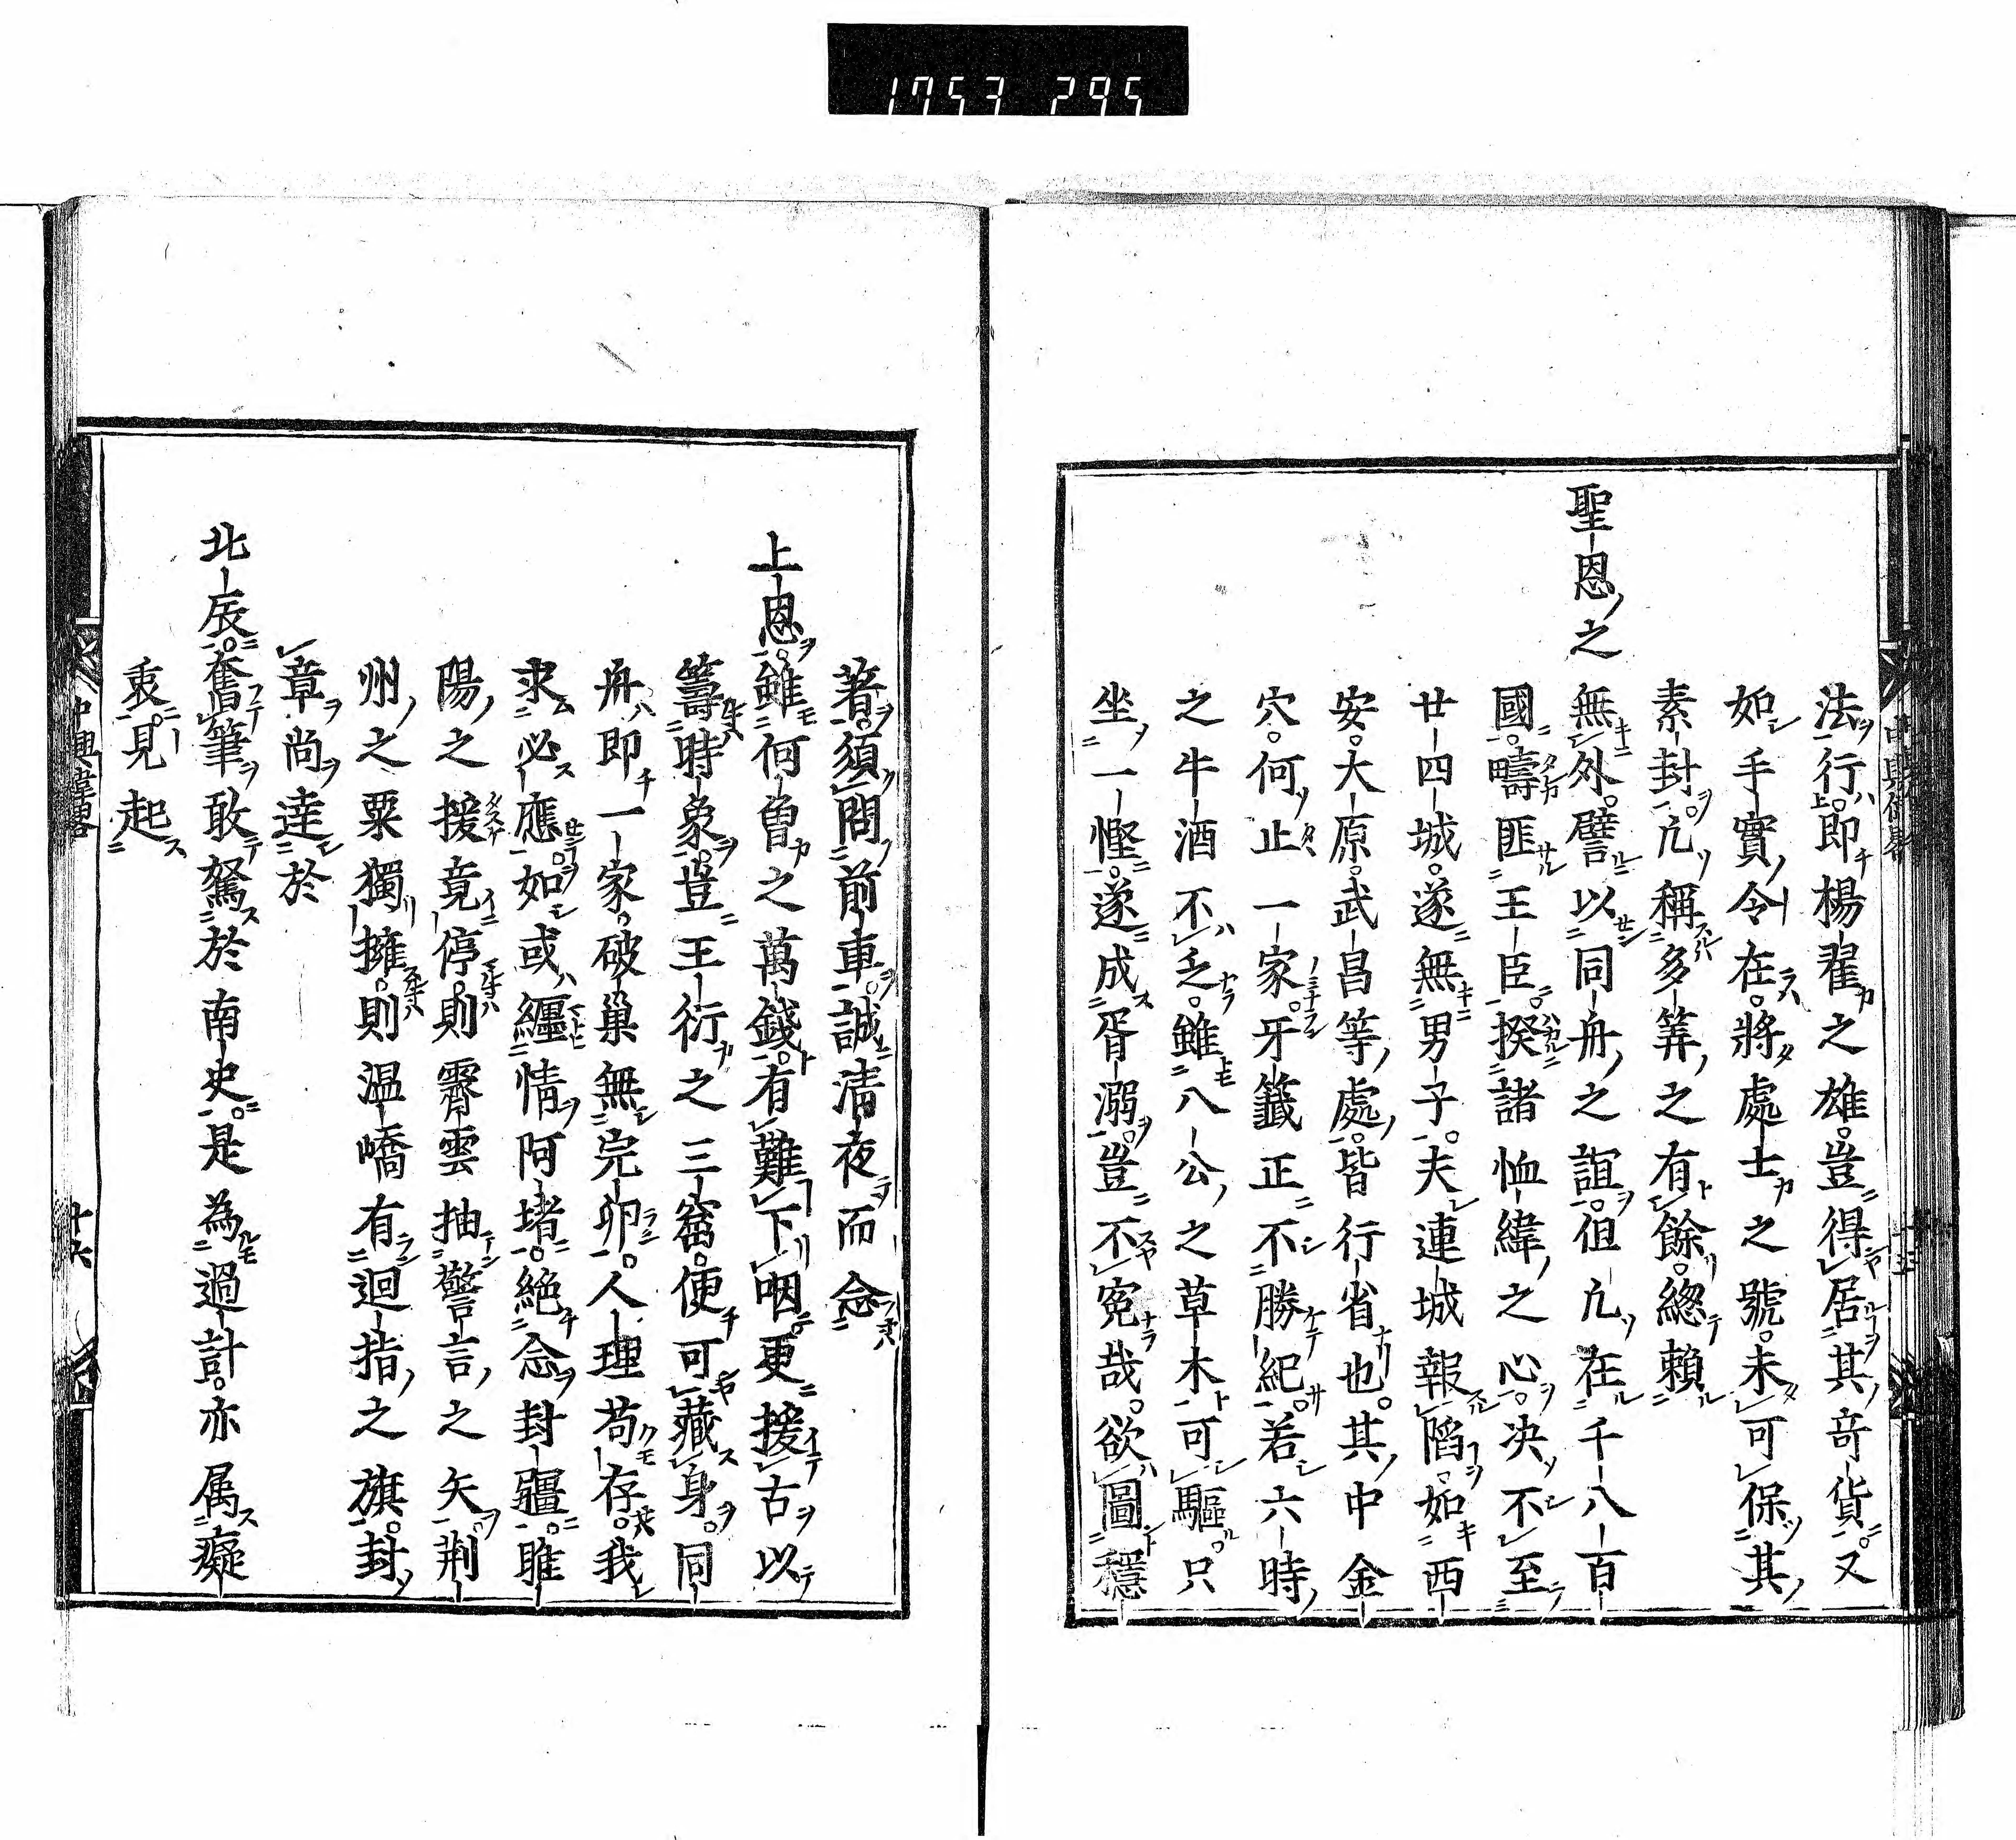 1753 295
法行即楊翟之雄。豈得居其竒貨。又
如手實令在。將處士之號。未可保其
素封。亢稱多筭之有餘。緫賴
聖恩之
無外。譬以同舟之誼。但亢在千八百
國。疇匪王臣。揆諸恤緯之心。决不至
廿四城。遂無男子。夫連城報陷。如西
安。大原。武昌等處。皆行省也。其中金
穴。何止一家。牙籤正不勝紀。若六時
之牛酒不乏。雖八公之草木可驅。只
坐一慳。遂成胥溺。豈不寃哉。欲圖穩
著。須問前車。誠清夜而念
上恩。雖何曽之萬錢。有難下咽。更援古以
籌時象。豈王衍之三窟。便可藏身。同
舟即一家。破巢無完卵。人理苟存。我
求必應。如或纒情阿堵。絕念封疆。睢
陽之援竟停。則霽雲抽警言之矢。荆
州之粟獨擁。則温嶠有迴指之旗。封
章尚逹於
北辰。奮筆敢駑於南史。是為過計。亦属癡
衷。見起
中興偉畧
十六